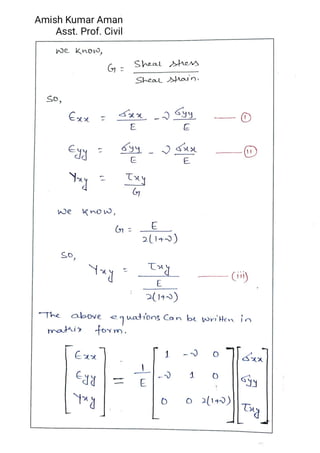 Amish Kumar Aman
Asst. Prof. Civil
We know,
G = Sheal stress / Sheal strain.
So,
Exx = σxx / E - ν σyy / E — (i)
Eyy = σyy / E - ν σxx / E — (ii)
γxy = τxy / G
We know,
G = E / 2(1+ν)
So,
γxy = τxy / (E / 2(1+ν)) — (iii)
The above equations can be written in
matrix form.
[Exx] = 1/E [1 -ν 0] [σxx]
[Eyy] [-ν 1 0] [σyy]
[γxy] [0 0 2(1+ν)] [τxy]